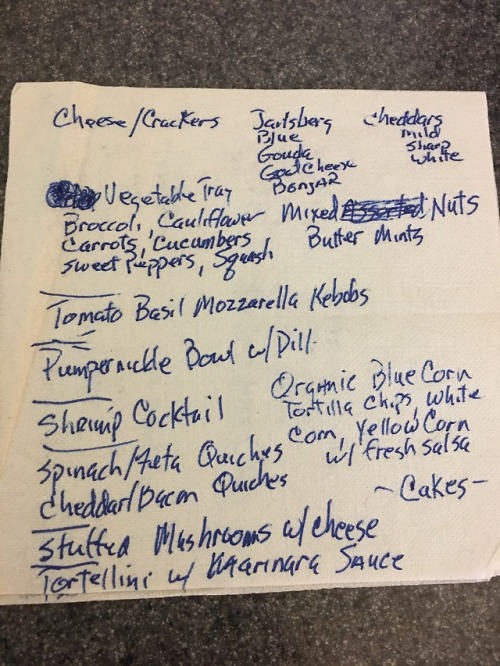 Cheese/Crackers
Jarlsberg
Blue
Gouda
Goat Cheese
BonJAR
Cheddars
Mild
Sharp
White
Vegetable Tray
Broccoli, Cauliflower
Carrots, Cucumbers
Sweet Peppers, Squash
Mixed Assorted Nuts
Butter Mints
Tomato Basil Mozzarella Kebobs
Pumpernickle Bowl w/Dill
Shrimp Cocktail
Organic Blue Corn
Tortilla Chips, White
Corn, Yellow Corn
w/ fresh salsa
Spinach/Feta Quiches
Cheddar/Bacon Quiches
- Cakes -
Stuffed Mushrooms w/cheese
Tortellini w/ Maarinara Sauce